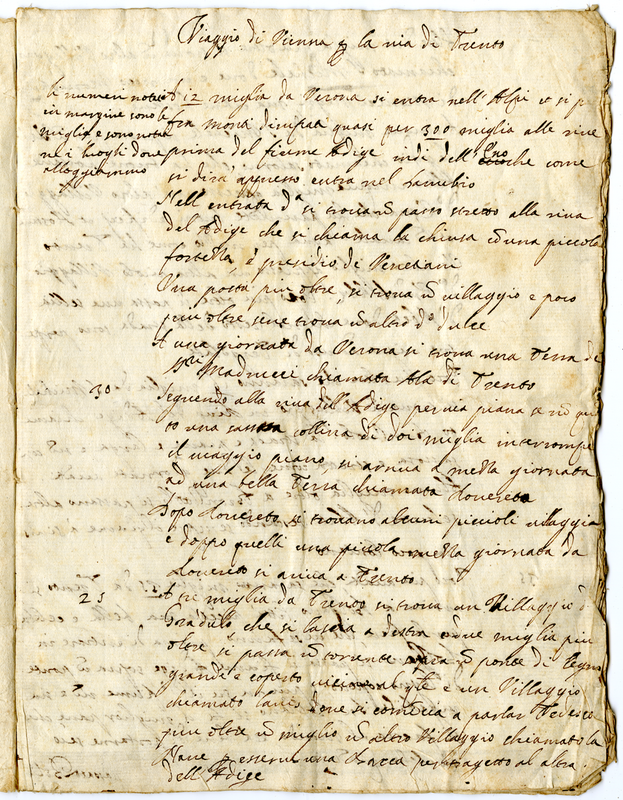 Viaggio di Vienna p la via di Trento
li numeri notati
in margine sono le
miglia e sono notati
ne i luoghi dove
alloggiammo
A 12 miglia da Verona si entra nell' Alpi et si p
tra monti dirupati quasi per 300 miglia alle rive
prima del fiume Adige indi dell' Eno che come
si dirà appresso entra nel Danubio
Nell' entrata d'a si trova un passo stretto alla riva
del Adige che si chiama la chiusa con una piccola
fortezza è presidio di Venetiani
Una posta più oltre, si trova un villaggio e poco
più oltre se ne trova un altro d'o Dulce
A una giornata da Verona si trova una Terra de
SSri Madrucci chiamata Ala di Trento
30
Seguendo alla riva dell' Adige per via piana se non
una collina di doi miglia interrompe
il viaggio piano, si arriva a mezza giornata
ad una bella Terra chiamata Rovereto
Dopo Rovereto si trovano alcuni piccioli villaggi
e doppo quelli una piccola mezza giornata da
Rovereto si arriva a Trento
25
A tre miglia da Trento si trova un Villaggio
che si lascia a destra e due miglia più
oltre si passa un torrente sopra un ponte di legno
grande e coperto e un Villaggio
chiamato Lavis dove si comincia a parlar Tedesco
più oltre un miglio un altro Villaggio chiamato la
Nave p esservi una Barca per tragetto al altra
dell' Adige